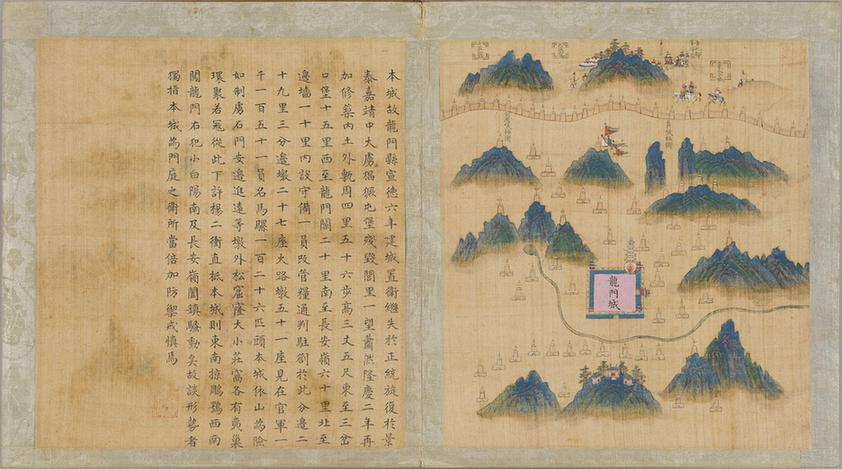 本城故龍門縣宣德六年建城置衛繼失於正統旋復於景
泰嘉靖中大虜猖獗屯堡殘毀閭里一望蕭然隆慶二年再
加修築內土外甎周四里五十六步高三丈五尺東至三岔
口堡十五里西至龍門關二十里南至長安嶺六十里北至
邊墻一十里內設守備一員改管糧通判駐劄於此分邊二
十九里三分邊墩二十七座火路墩五十一座見在官軍一
千一百五十一員名馬騾一百二十六匹頭本城依山為險
如制虜石門安邊進遠等墩外松窟窿大小莊窩各有夷巢
環聚若冦從此下許楊二衝直抵本城則東南掠鵰鶚西南
闖龍門右犯小白陽南及長安嶺闔鎮騷動矣故談形勢者
獨指本城為門庭之衛所當倍加防禦戒慎焉
龍門城